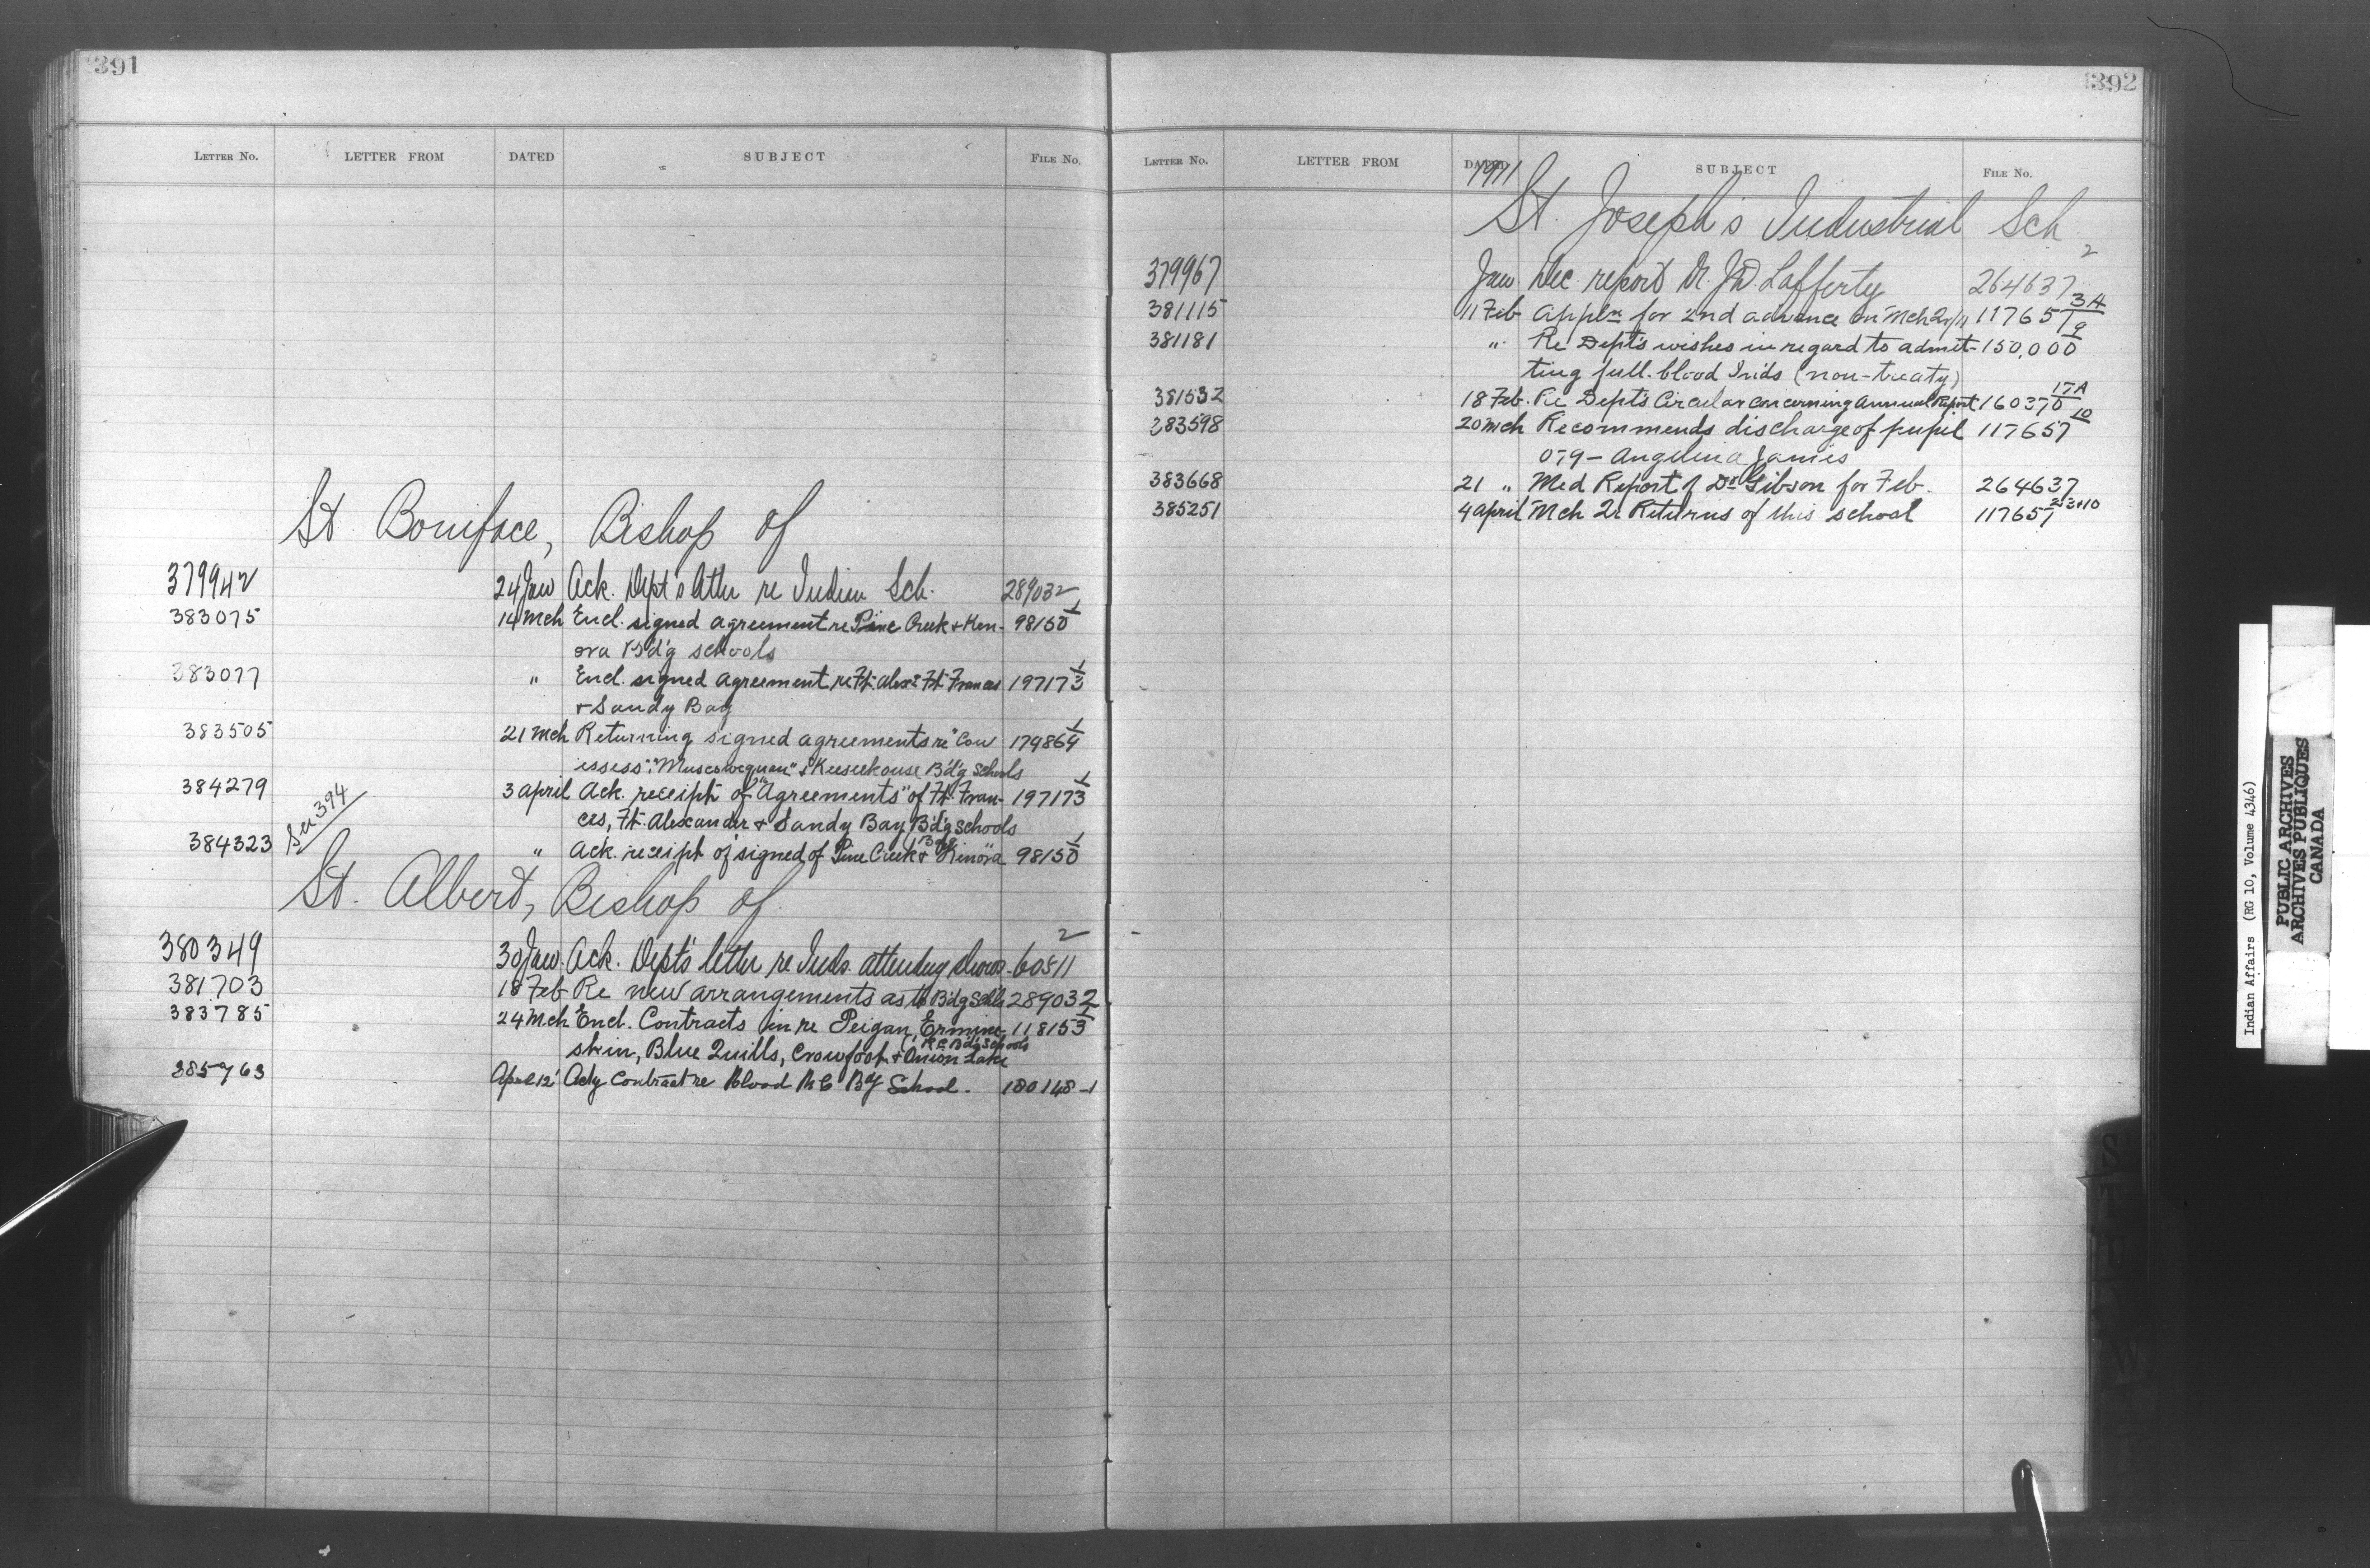 391
LETTER NO. LETTER FROM DATED SUBJECT FILE NO.
St. Boniface, Bishop of
379942 24 Jan Ack. Dept's letter re Indian Sch. 289032
383075 14 Mch Encl. signed agreement re Pine Creek & Ken- 98150 1
ora B'd'g schools
383077 " Encl. signed agreement re Ft. Alexr Ft. Frances 197173 1
& Sandy Bay
383505 21 Mch Returning signed agreements re "Cow 179864 1
essess", "Muscowequan" & Keeseekouse B'd'g Schools
384279 3 April Ack. receipt of "Agreements" of Ft. Fran- 197173 1
ces, Ft. Alexander & Sandy Bay B'd'g schools
See 394
384323 " Ack. receipt of signed of Pine Creek & Kenora 98150 1
St. Albert, Bishop of
380349 30 Jan. Ack. Dept's letter re Inds. attending shows. 60511 2
381703 18 Feb Re new arrangements as to B'd'g Schls 289032
383785 24 Mch Encl. Contracts in re Peigan, Ermine- 118153 1
skin, Blue Quills, Crowfoot & Onion Lake (R.C. B'd'g Schools
385763 April 12 Contract re Blood R C Bg School. 180148-1
392
LETTER NO. LETTER FROM DATED SUBJECT FILE NO.
1911
St. Joseph's Industrial Sch
379967 Jan. Dec report Dr. J.D. Lafferty 264637 2
381115 11 Feb Appln for 2nd advance on Mch Qr/11 117657 3A
381181 " Re Dept's wishes in regard to admit- 150,000 9
ting full-blood Inds (non-treaty)
381532 18 Feb. Re Dept's Circular concerning Annual Report 160370 17A
383598 20 Mch Recommends discharge of pupil 117657 10
079 - Angelina James
383668 21 " Med Report of Dr Gibson for Feb. 264637
385251 4 April Mch Qr Returns of this school 117657 2-3+10
Indian Affairs (RG 10, Volume 4346)
PUBLIC ARCHIVES
ARCHIVES PUBLIQUES
CANADA